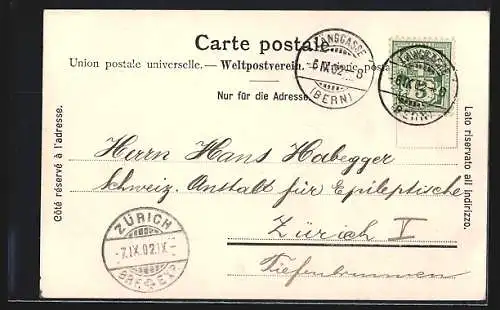 Carte postale.
Union postale universelle. — Weltpostverein. — Unione postale
Nur für die Adresse.
Côté réservé à l'adresse.
Lato riservato all' indirizzo.
LÄNGGASSE
6.IX.02.-8
(BERN)
LÄNGGASSE
6.IX.02.-8
(BERN)
5
Herrn Hans Habegger
Schweiz. Anstalt für Epileptische
Zürich V
Tiefenbrunnen
ZÜRICH
-7.IX.02.IX-
BRF. EXP.